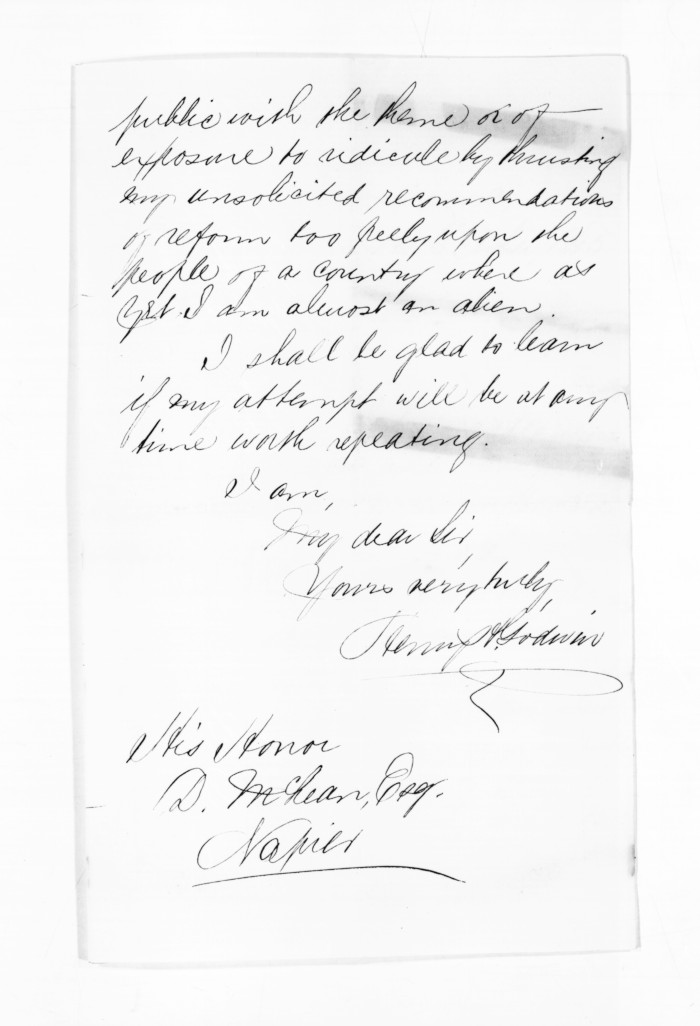 public with the theme or of
exposure to ridicule by thrusting
my unsolicited recommendations
of reform too freely upon the
people of a country where as
yet I am almost an alien.
I shall be glad to learn
if my attempt will be at any
time worth repeating.
I am,
My dear Sir,
Yours very truly,
Henry Godwin
His Honor
D. McLean, Esq.
Napier